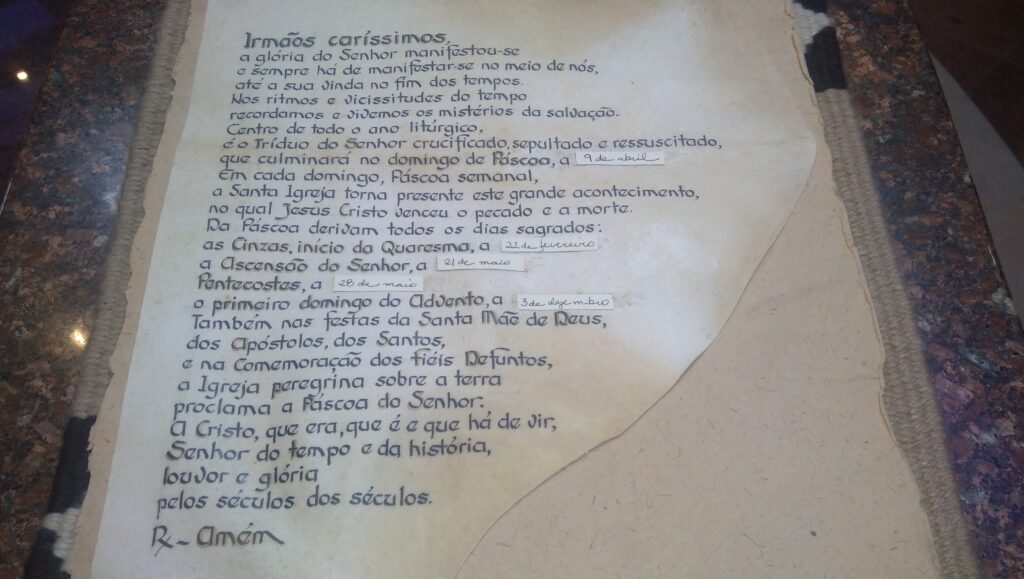 Irmãos caríssimos,
a glória do Senhor manifestou-se
e sempre há de manifestar-se no meio de nós,
até a sua vinda no fim dos tempos.
Nos ritmos e vicissitudes do tempo
recordamos e vivemos os mistérios da salvação.
Centro de todo o ano litúrgico,
é o Tríduo do Senhor crucificado, sepultado e ressuscitado,
que culminará no domingo de Páscoa, a 9 de abril
Em cada domingo, Páscoa semanal,
a Santa Igreja torna presente este grande acontecimento,
no qual Jesus Cristo venceu o pecado e a morte.
Da Páscoa derivam todos os dias sagrados:
as Cinzas, início da Quaresma, a 22 de fevereiro
a Ascensão do Senhor, a 21 de maio
Pentecostes, a 28 de maio
o primeiro domingo do Advento, a 3 de dezembro
Também nas festas da Santa Mãe de Deus,
dos Apóstolos, dos Santos,
e na Comemoração dos Fiéis Defuntos,
a Igreja peregrina sobre a terra
proclama a Páscoa do Senhor.
A Cristo, que era, que é e que há de vir,
Senhor do tempo e da história,
louvor e glória
pelos séculos dos séculos.
R/- Amém